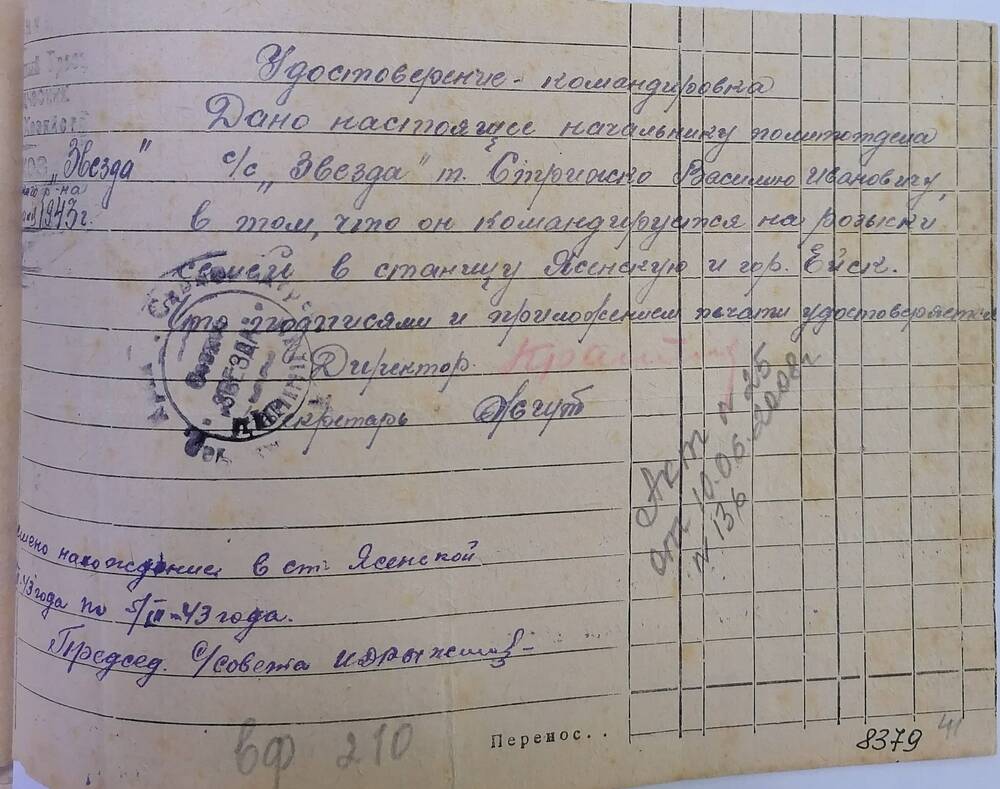 Удостоверение-командировка
Дано настоящее начальнику политотдела
с/с "Звезда" т. Стрижко Василию Ивановичу,
в том, что он командируется на розыски
семьи в станицу Ясенскую и гор. Ейск.
Что подписями и приложением печати удостоверяется
Директор.
Секретарь
"Звезда"
р-на
1943 г.
ЗВЕЗДА
Акт № 25
от 10.06.2008 г
№ 136
нахождение в ст. Ясенской
43 года по 5/III-43 года.
Председ. с/совета
Перенос..
вф 210
8379
41